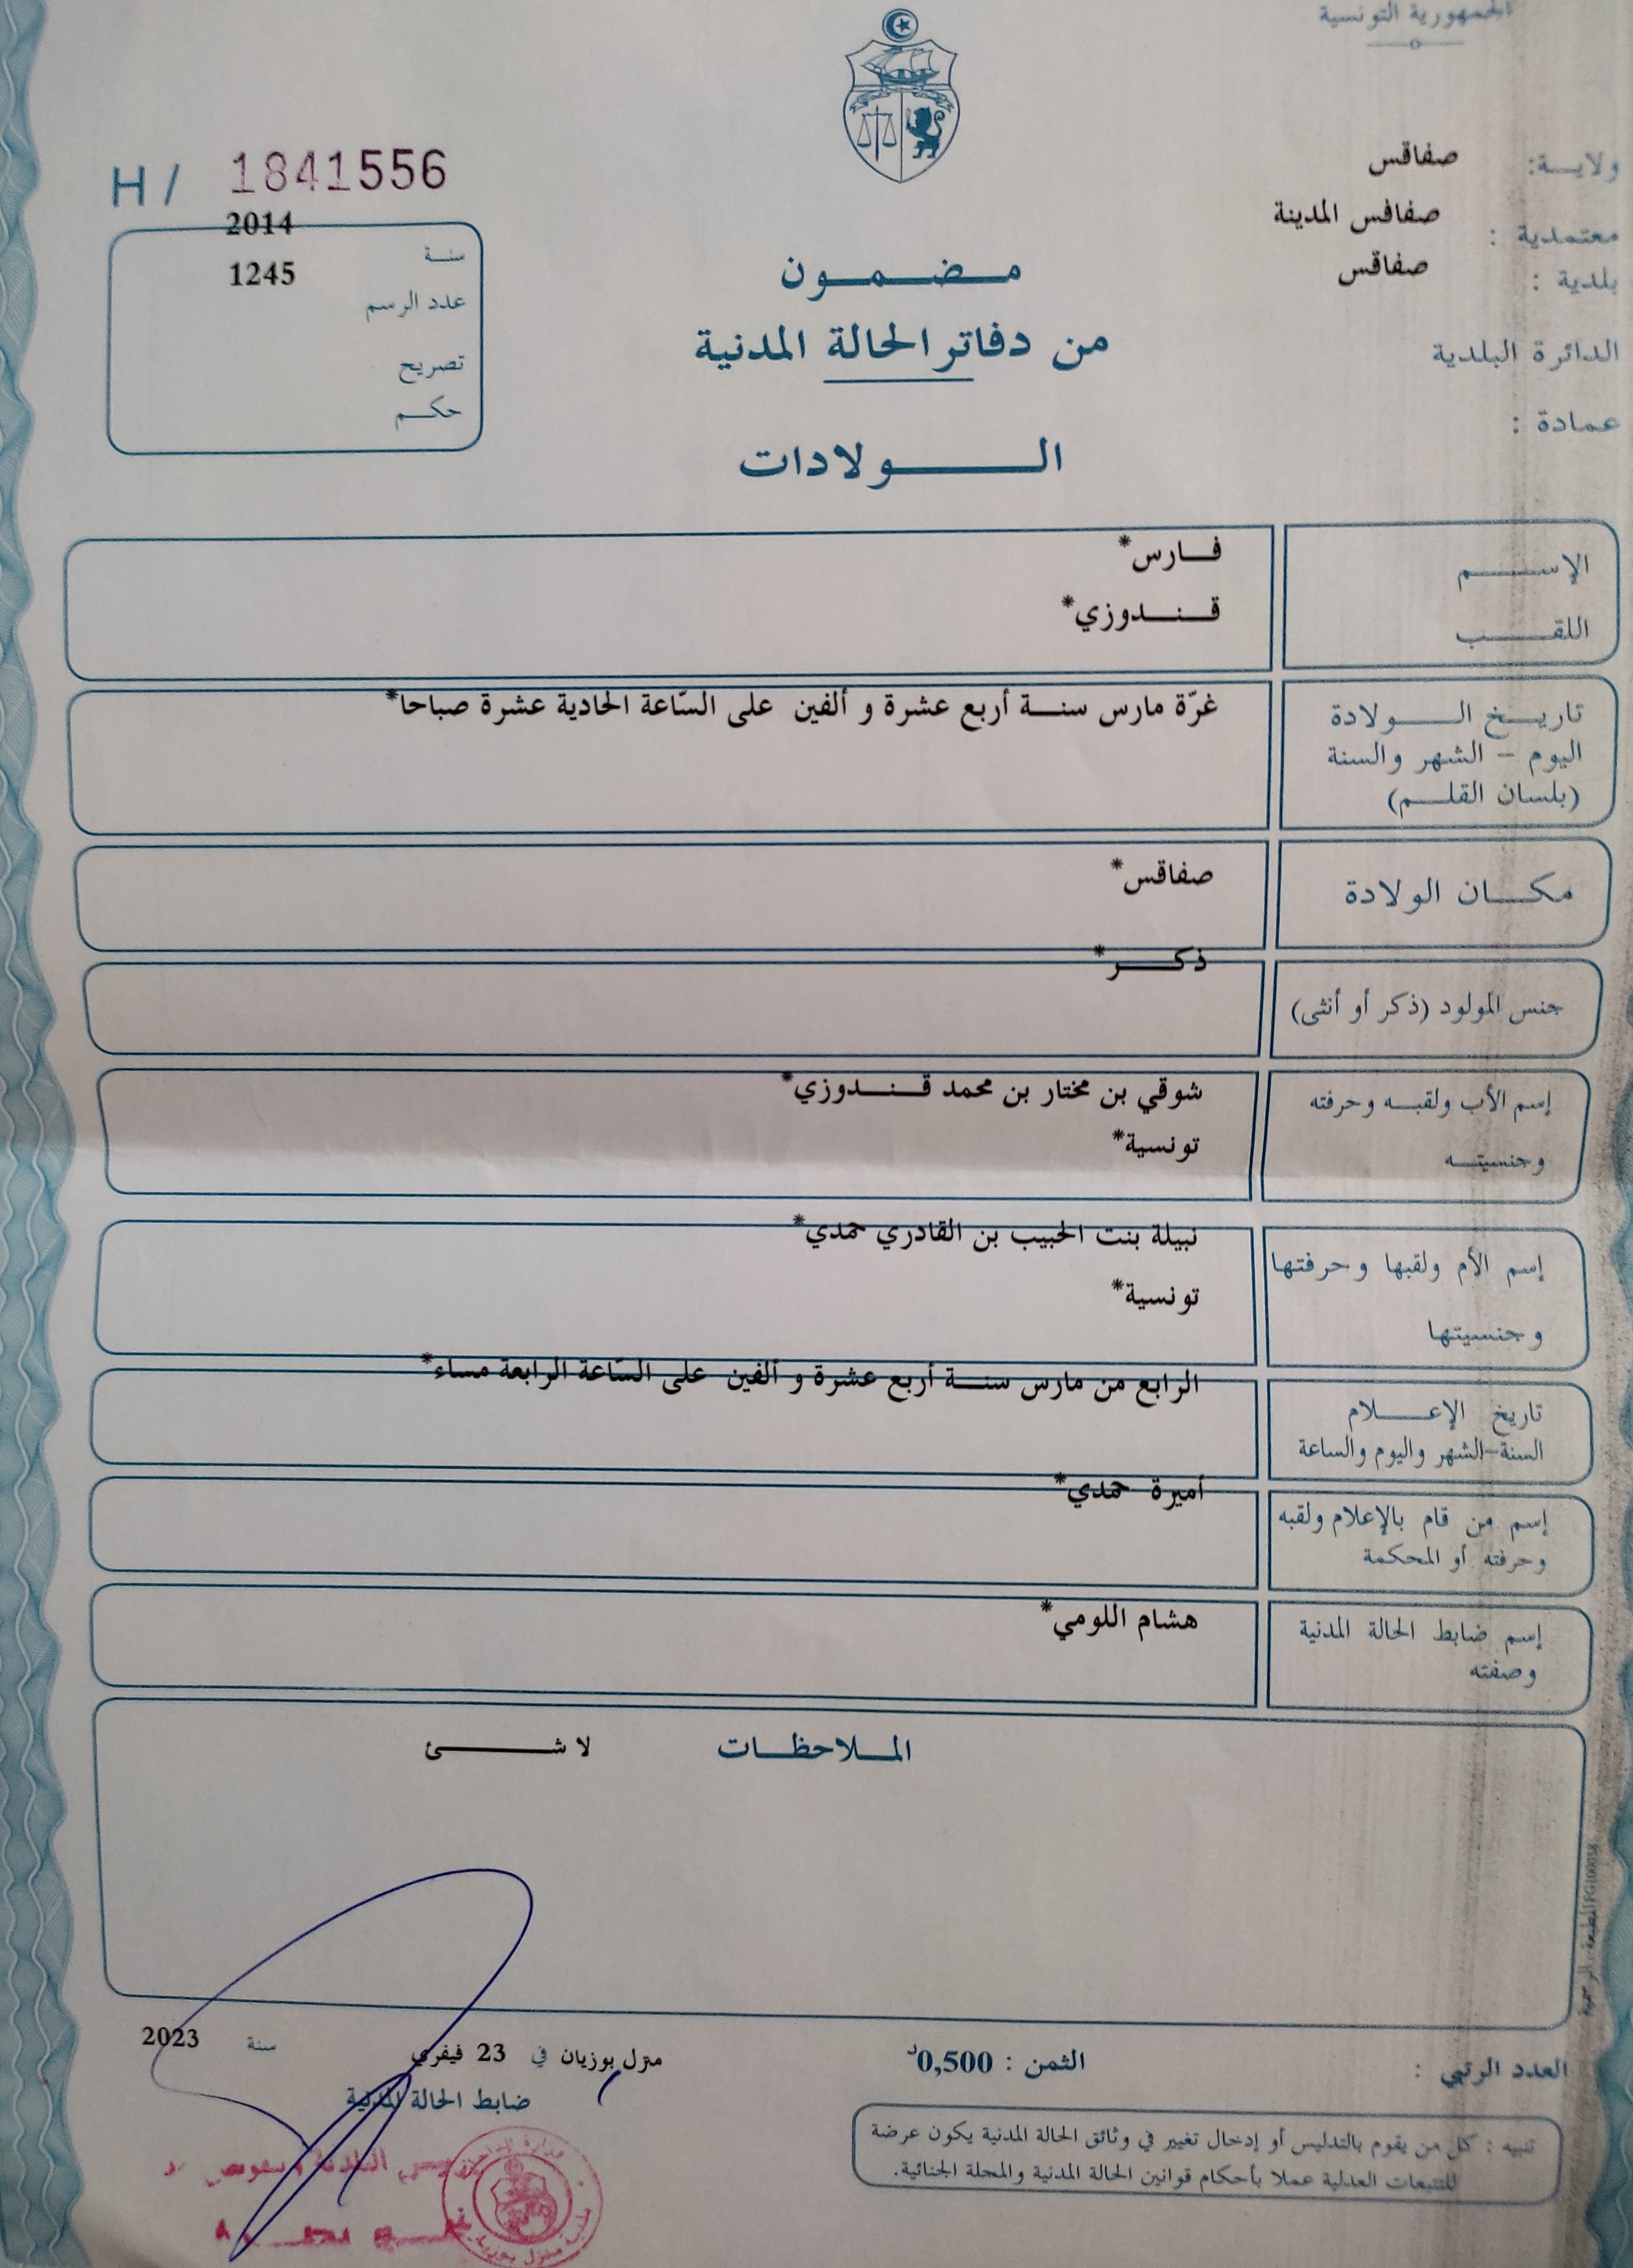 الجمهورية التونسية
ولايـــة: صفاقس
معتمدية : صفاقس المدينة
بلدية : صفاقس
الدائرة البلدية
عمادة :
H / 1841556
سنـة 2014
عدد الرسم 1245
تصريح
حكـــم
مـــضـــمـــون
من دفاتر الحالة المدنية
الـــــولادات
الإســـــم فــارس*
اللقـــــب قــنـــدوزي*
تاريـــخ الـــــولادة غرّة مارس سنـــة أربع عشرة و ألفين على السّاعة الحادية عشرة صباحا*
اليوم – الشهر والسنة
(بلسان القلـــم)
مكـــان الولادة صفاقس*
جنس المولود (ذكر أو أنثى) ذكـــر*
إسم الأب ولقبــه وحرفته شوقي بن مختار بن محمد قــنـــدوزي*
وجنسيتــه تونسية*
إسم الأم ولقبها وحرفتها نبيلة بنت الحبيب بن القادري حمدي*
وجنسيتها تونسية*
تاريخ الإعـــــلام الرابع من مارس سنـــة أربع عشرة و ألفين على السّاعة الرابعة مساء*
السنة-الشهر واليوم والساعة
إسم من قام بالإعلام ولقبه أميرة حمدي*
وحرفته أو المحكمة
إسم ضابط الحالة المدنية هشام اللومي*
وصفته
المـــلاحظـــات لا شـــــئ
المطبعة الرسمية FG100038
العدد الرتبي :
الثمن : 0,500د
منزل بوزيان في 23 فيفري سنة 2023
ضابط الحالة المدنية
تنبيه : كل من يقوم بالتدليس أو إدخال تغيير في وثائق الحالة المدنية يكون عرضة
للتتبعات العدلية عملا بأحكام قوانين الحالة المدنية والمجلة الجنائية.